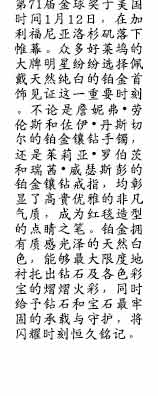 第71届金球奖于美国
时间1月12日，在加
利福尼亚洛杉矶落下
帷幕。众多好莱坞的
大牌明星纷纷选择佩
戴天然纯白的铂金首
饰见证这一重要时刻
。不论是詹妮弗•劳
伦斯和佐伊•丹斯切
尔的铂金镶钻手镯，
还是茱莉亚•罗伯茨
和瑞茜•威瑟斯彭的
铂金镶钻戒指，均彰
显了高贵优雅的非凡
气质，成为红毯造型
的点睛之笔。铂金拥
有质感光泽的天然白
色，能够最大限度地
衬托出钻石及各色彩
宝的熠熠火彩，同时
给予钻石和宝石最牢
固的承载与守护，将
闪耀时刻恒久铭记。